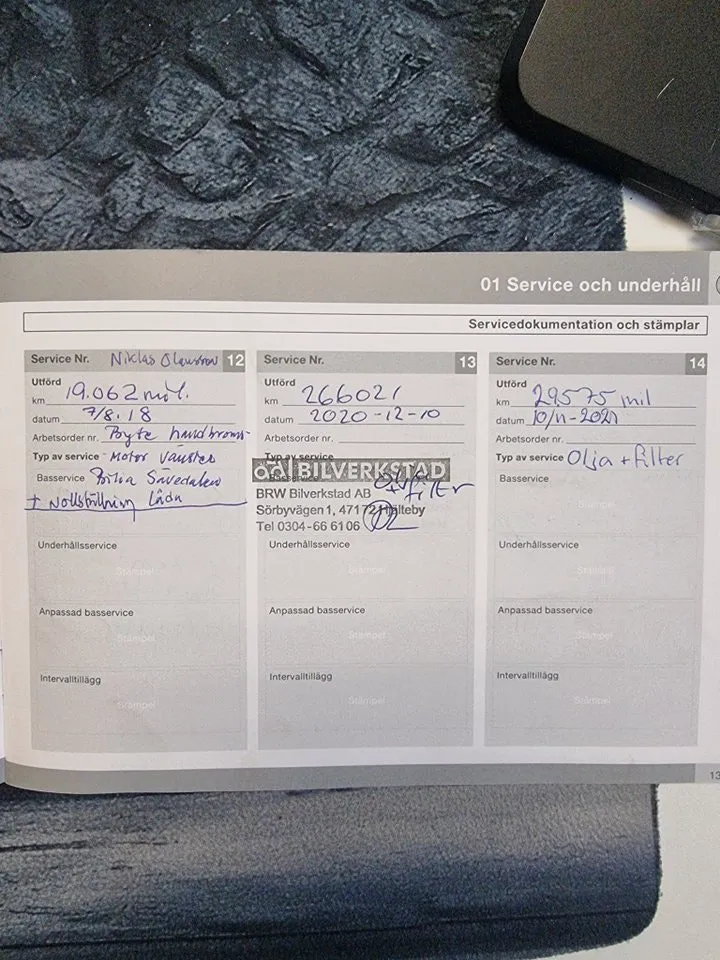 01 Service och underhåll
Servicedokumentation och stämplar
Service Nr. Niklas Olausson 12
Utförd
km 19.062 mil.
datum 7/8.18
Arbetsorder nr. Byte handbroms-
Typ av service - Motor vänster
Basservice Bilia Sävedalen
+ Nollställning Låda
Underhållsservice
Stämpel
Anpassad basservice
Stämpel
Intervalltillägg
Stämpel
Service Nr. 13
Utförd
km 266021
datum 2020-12-10
Arbetsorder nr.
Typ av service
BILVERKSTAD
Basservice
BRW Bilverkstad AB
Sörbyvägen 1, 471 72 Hjälteby
Tel 0304-66 61 06
Underhållsservice
Stämpel
Anpassad basservice
Stämpel
Intervalltillägg
Stämpel
Service Nr. 14
Utförd
km 29575 mil
datum 10/11-2021
Arbetsorder nr.
Typ av service Olja + filter
Basservice
Stämpel
Underhållsservice
Stämpel
Anpassad basservice
Stämpel
Intervalltillägg
Stämpel
13